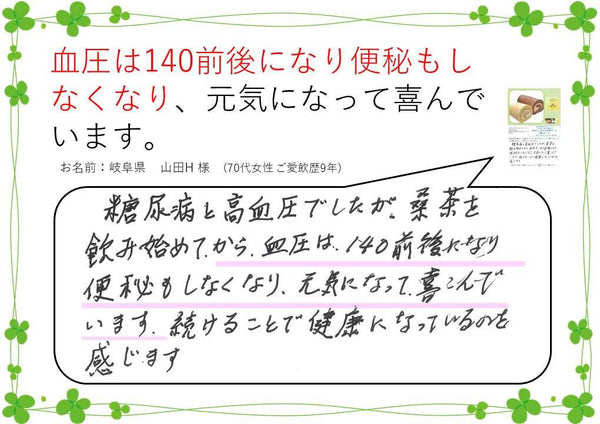 血圧は140前後になり便秘もし
なくなり、元気になって喜んで
います。
お名前：岐阜県　山田H 様　(70代女性 ご愛飲歴9年)
糖尿病と高血圧でしたが、桑茶を
飲み始めてから、血圧は、140前後になり
便秘もしなくなり、元気になって、喜こんで
います。続けることで健康になっているのを
感じます